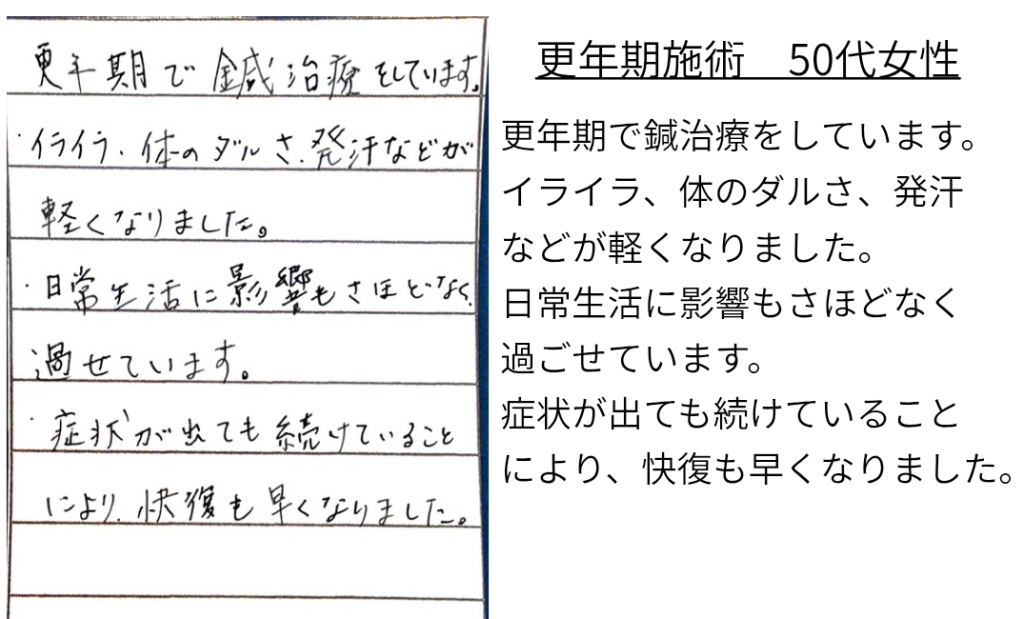 更年期で鍼治療をしています。
・イライラ、体のダルさ、発汗などが
軽くなりました。
・日常生活に影響もさほどなく
過せています。
・症状が出ても続けていること
により、快復も早くなりました。
更年期施術　50代女性
更年期で鍼治療をしています。
イライラ、体のダルさ、発汗
などが軽くなりました。
日常生活に影響もさほどなく
過ごせています。
症状が出ても続けていること
により、快復も早くなりました。